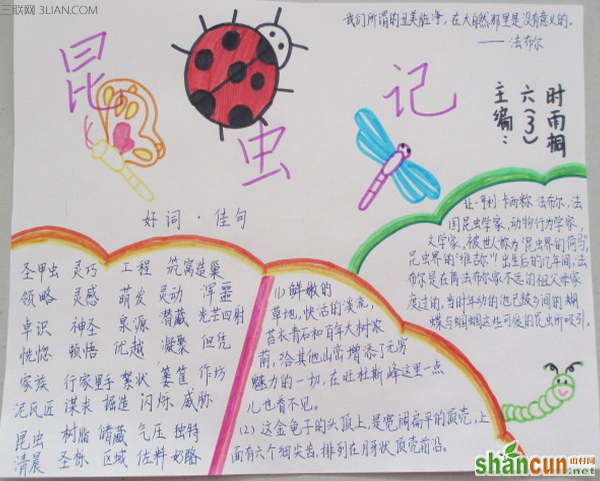 三联网 3LIAN.COM
我们所谓的丑美脏净，在大自然那里是没有意义的。
——法布尔
昆虫记
主编：
六(3)
时雨桐
好词·佳句
圣甲虫 灵巧 工程 筑窝造巢
领略 灵感 萌发 灵动 浑噩
卓识 神圣 泉源 潜藏 光芒四射
恍惚 顿悟 优越 凝聚 但凭
家族 行家里手 絮状 篓筐 作坊
泥瓦匠 谋求 掘造 闪烁 威胁
昆虫 树脂 储藏 气压 独特
清晨 圣徐 区域 佐料 奶酪
(1)鲜嫩的
草地，快活的溪流，
苔衣青石和百年大树浓
荫，给其他山峦增添了无穷
魅力的一切，在旺杜斯峰这里一点
儿也看不见。
(2)这金龟子的头顶上，是宽阔扁平的顶壳，上
面有六个细尖齿，排列在月牙状顶壳前沿。
让·亨利·卡西称·法布尔，法
国昆虫学家，动物行为学家，
文学家，被世人称为"昆虫界的荷马，
昆虫界的"维吉尔"出生后的几年间，法
布尔是在离法布尔家不远的祖父母家
度过的，当时年幼的他已被乡间的蝴
蝶与蝈蝈这些可爱的昆虫所吸引。
shancun
山村网
.net